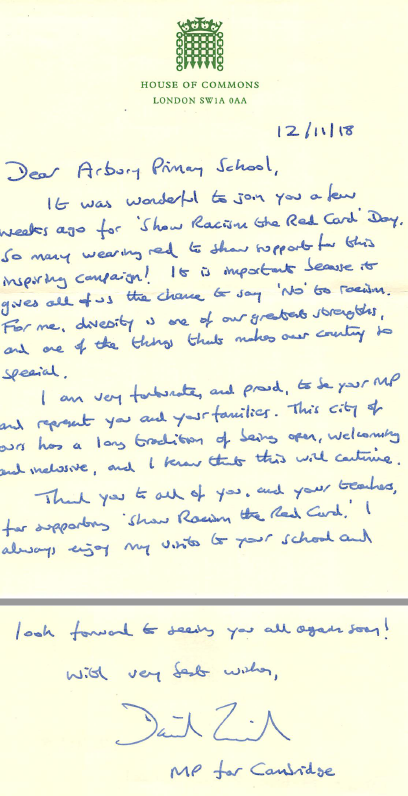 HOUSE OF COMMONS
LONDON SW1A 0AA
12/11/18
Dear Arbury Primary School,
It was wonderful to join you a few
weeks ago for 'Show Racism the Red Card' Day.
So many wearing red to show support for this
inspiring campaign! It is important because it
gives all of us the chance to say 'No' to racism.
For me, diversity is one of our greatest strengths,
and one of the things that makes our country so
special.
I am very fortunate, and proud, to be your MP
and represent you and your families. This city of
ours has a long tradition of being open, welcoming
and inclusive, and I know that this will continue.
Thank you to all of you, and your teachers,
for supporting 'Show Racism the Red Card.' I
always enjoy my visits to your school and
look forward to seeing you all again soon!
With very best wishes,
Daniel Zeichner
MP for Cambridge